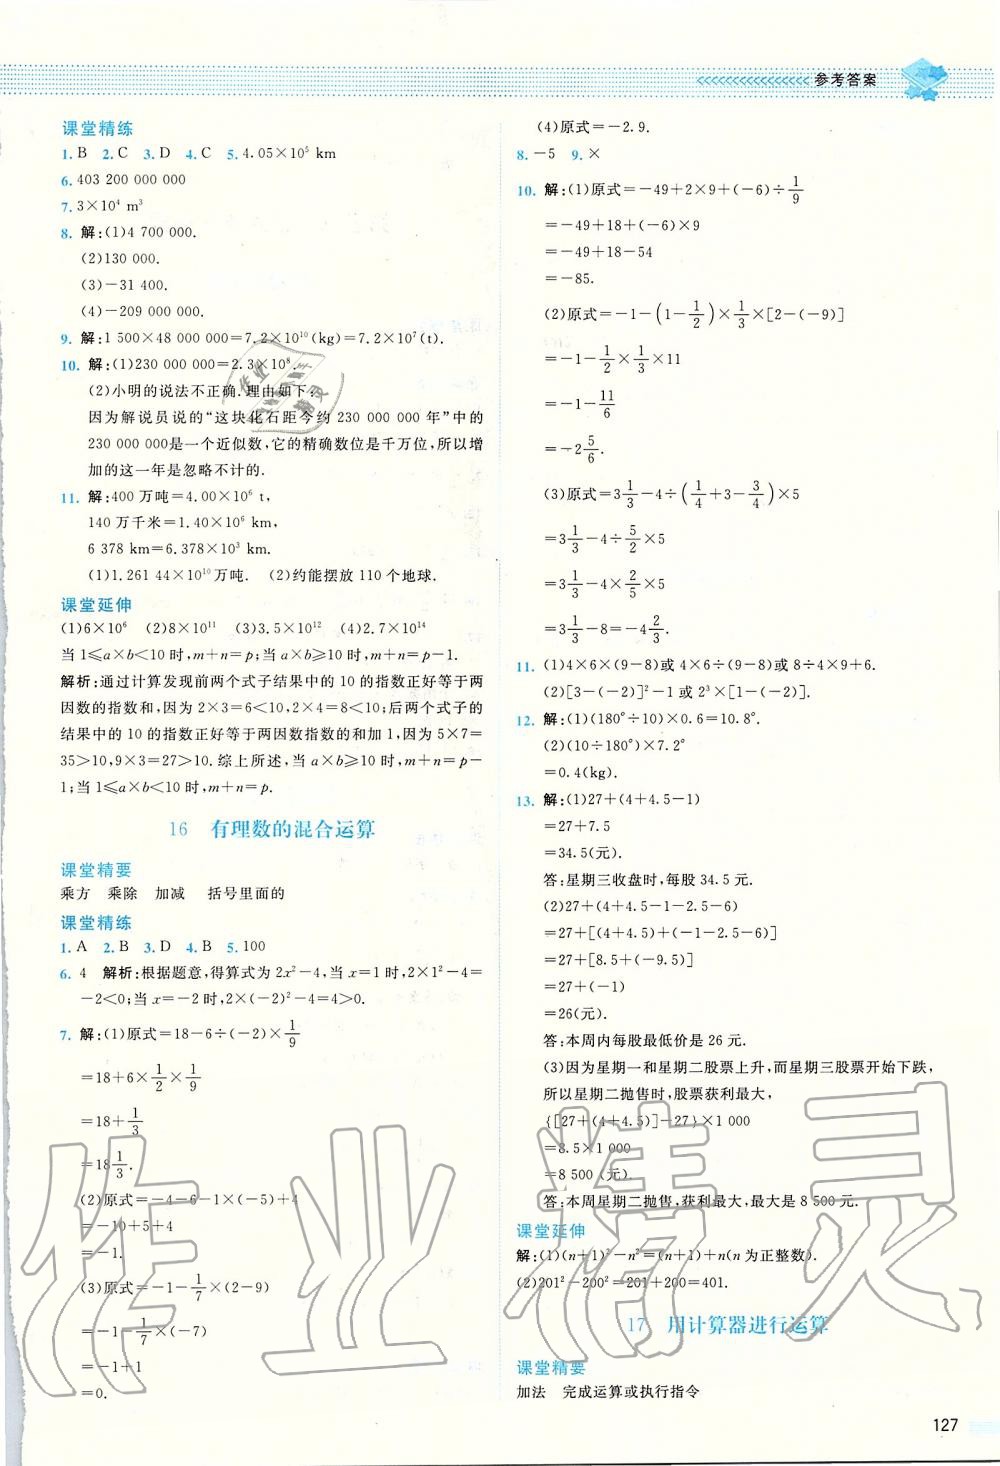 参考答案
课堂精练
1. B  2. C  3. D  4. C  5. 4.05×10⁵ km
6. 403 200 000 000
7. 3×10⁴ m³
8. 解:(1)4 700 000.
(2)130 000.
(3)-31 400.
(4)-209 000 000.
9. 解:1 500×48 000 000=7.2×10¹⁰(kg)=7.2×10⁷(t).
10. 解:(1)230 000 000=2.3×10⁸.
(2)小明的说法不正确.理由如下:
因为解说员说的“这块化石距今约 230 000 000 年”中的
230 000 000是一个近似数,它的精确数位是千万位,所以增
加的这一年是忽略不计的.
11. 解:400 万吨=4.00×10⁶ t,
140 万千米=1.40×10⁶ km,
6 378 km=6.378×10³ km.
(1)1.261 44×10¹⁰万吨.  (2)约能摆放 110 个地球.
课堂延伸
(1)6×10⁶  (2)8×10¹¹  (3)3.5×10¹²  (4)2.7×10¹⁴
当 1≤a×b<10 时,m+n=p;当 a×b≥10 时,m+n=p-1.
解析:通过计算发现前两个式子结果中的 10 的指数正好等于两
因数的指数和,因为 2×3=6<10,2×4=8<10;后两个式子的
结果中的 10 的指数正好等于两因数指数的和加 1,因为 5×7=
35>10,9×3=27>10.综上所述,当 a×b≥10 时,m+n=p-
1;当 1≤a×b<10 时,m+n=p.
16  有理数的混合运算
课堂精要
乘方  乘除  加减  括号里面的
课堂精练
1. A  2. B  3. D  4. B  5. 100
6. 4  解析:根据题意,得算式为 2x²-4,当 x=1 时,2×1²-4=
-2<0;当 x=-2 时,2×(-2)²-4=4>0.
7. 解:(1)原式=18-6÷(-2)×1/9
=18+6×1/2×1/9
=18+1/3
=18 1/3.
(2)原式=-4-6-1×(-5)+4
=-10+5+4
=-1.
(3)原式=-1-1/7×(2-9)
=-1-1/7×(-7)
=-1+1
=0.
(4)原式=-2.9.
8. -5  9. ×
10. 解:(1)原式=-49+2×9+(-6)÷1/9
=-49+18+(-6)×9
=-49+18-54
=-85.
(2)原式=-1-(1-1/2)×1/3×[2-(-9)]
=-1-1/2×1/3×11
=-1-11/6
=-2 5/6.
(3)原式=3 1/3-4÷(1/4+3-3/4)×5
=3 1/3-4÷5/2×5
=3 1/3-4×2/5×5
=3 1/3-8=-4 2/3.
11. (1)4×6×(9-8)或 4×6÷(9-8)或 8÷4×9+6.
(2)[3-(-2)]²-1 或 2³×[1-(-2)].
12. 解:(1)(180°÷10)×0.6=10.8°.
(2)(10÷180°)×7.2°
=0.4(kg).
13. 解:(1)27+(4+4.5-1)
=27+7.5
=34.5(元).
答:星期三收盘时,每股 34.5 元.
(2)27+(4+4.5-1-2.5-6)
=27+[(4+4.5)+(-1-2.5-6)]
=27+[8.5+(-9.5)]
=27+(-1)
=26(元).
答:本周内每股最低价是 26 元.
(3)因为星期一和星期二股票上升,而星期三股票开始下跌,
所以星期二抛售时,股票获利最大,
{[27+(4+4.5)]-27}×1 000
=8.5×1 000
=8 500(元).
答:本周星期二抛售,获利最大,最大是 8 500 元.
课堂延伸
解:(1)(n+1)²-n²=(n+1)+n(n 为正整数).
(2)201²-200²=201+200=401.
17  用计算器进行运算
课堂精要
加法  完成运算或执行指令
127
作业精灵